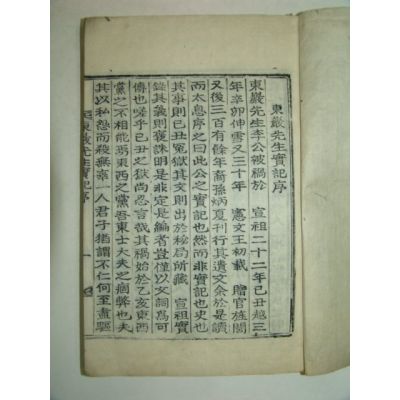 東巖先生實記序
東巖先生李公被禍於 宣祖二十二年己丑越三
年辛卯伸雪又三十年 憲文王初載 贈官旌閭
又後三百有餘年裔孫炳夏刊行其遺文余於是讀
而太息序之曰此公之實記也然而非實記也史也
其事則己丑冤獄其文則出於秘局所藏 宣祖實
錄其義則褒誅明是非定是編者豈僅以文詞爲可
傳也哉乎己丑之獄尚忍言哉其禍始於乙亥東西
黨之不相能焉東西之黨吾東士大夫之痼弊也夫
其以私怨而殺無辜一人君子猶謂不仁何至盡驅
東巖先生實記序
一